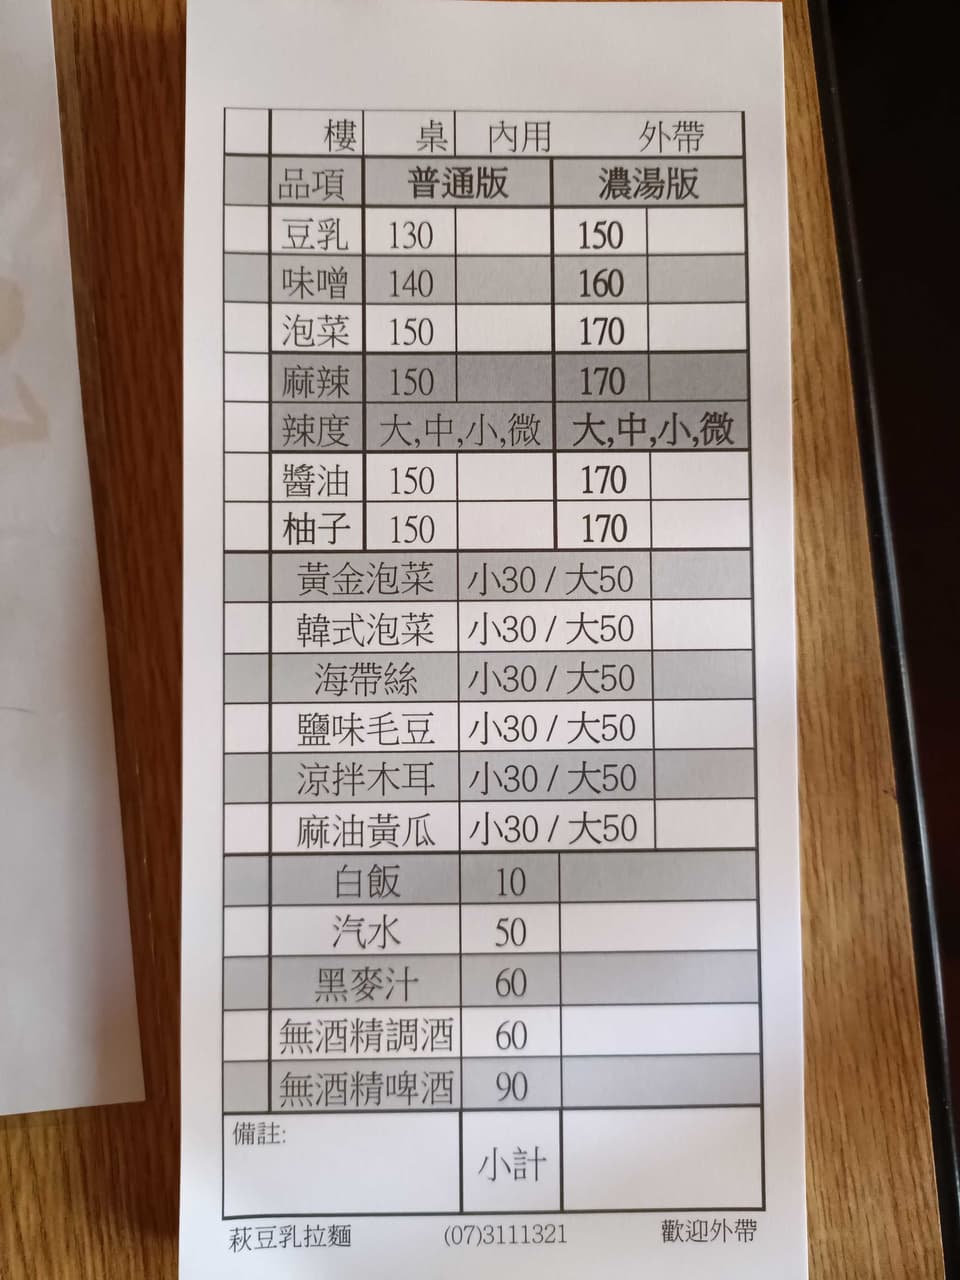 樓 桌 內用 外帶
品項 普通版 濃湯版
豆乳 130 150
味噌 140 160
泡菜 150 170
麻辣 150 170
辣度 大,中,小,微 大,中,小,微
醬油 150 170
柚子 150 170
黃金泡菜 小30 / 大50
韓式泡菜 小30 / 大50
海帶絲 小30 / 大50
鹽味毛豆 小30 / 大50
涼拌木耳 小30 / 大50
麻油黃瓜 小30 / 大50
白飯 10
汽水 50
黑麥汁 60
無酒精調酒 60
無酒精啤酒 90
備註:
小計
萩豆乳拉麵 (07)3111321 歡迎外帶